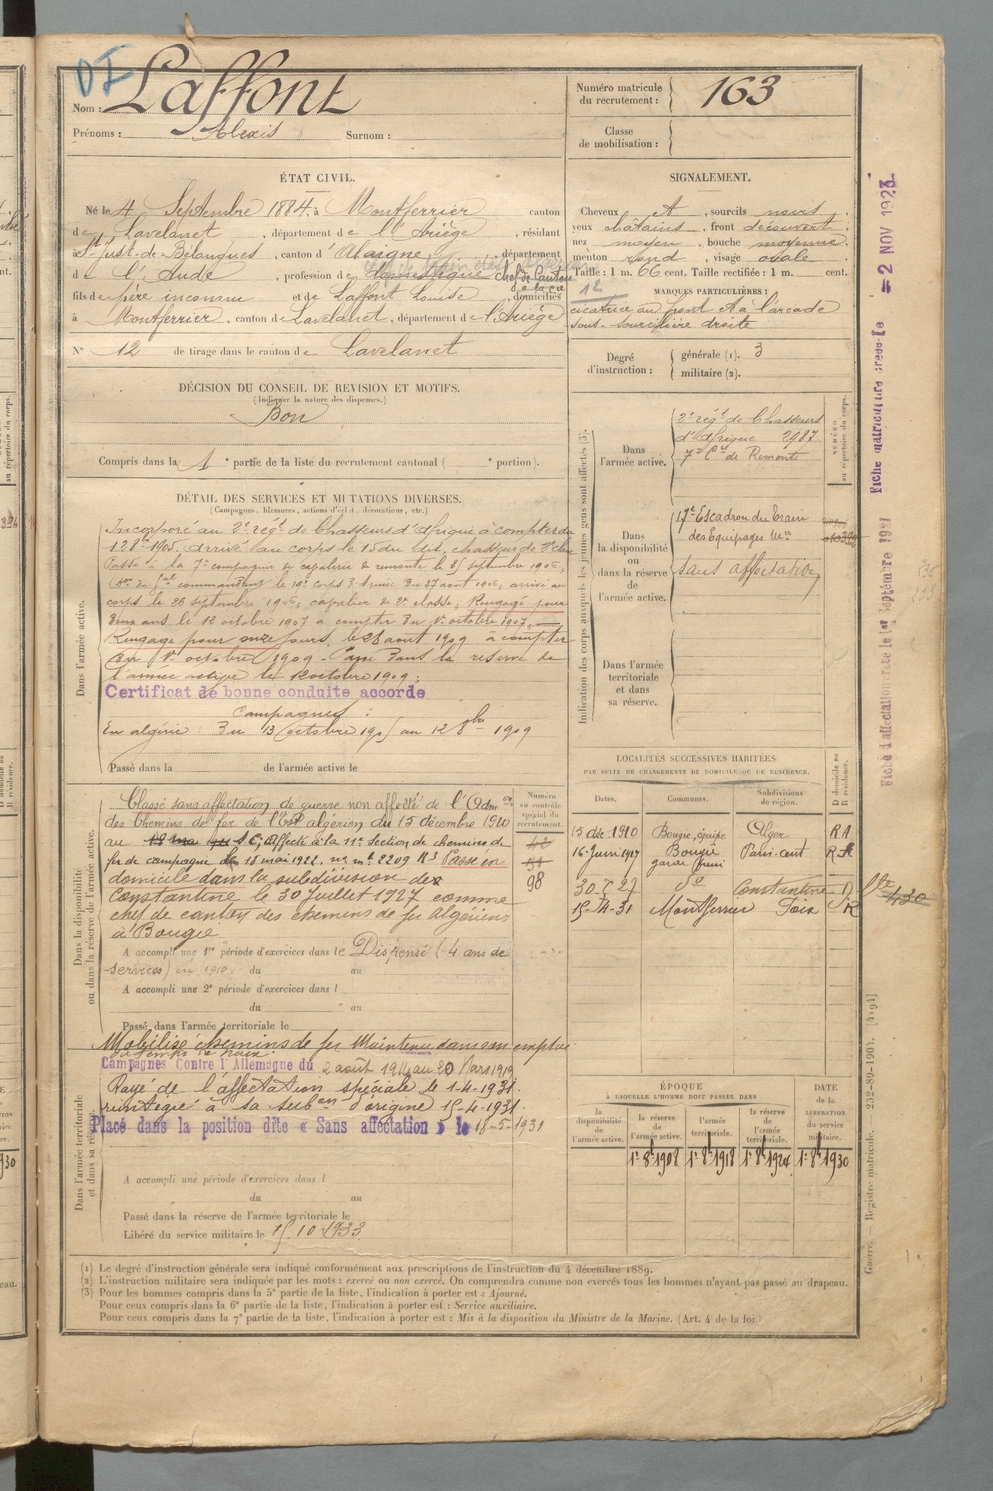 OI
Nom : Laffont
Prénoms : Alexis Surnom :
Numéro matricule du recrutement : 163
Classe de mobilisation :
ÉTAT CIVIL.
Né le 4 Septembre 1884 à Montferrier canton
de Lavelanet, département de l'Ariège, résidant
à St Just-de-Bélengues, canton d'Alaigne, département
de l'Aude, profession de domestique chef de canton
fils de père inconnu et de Laffont Louise, domiciliés
à Montferrier, canton de Lavelanet, département de l'Ariège
N° 12 de tirage dans le canton de Lavelanet
SIGNALEMENT.
Cheveux et, sourcils noirs.
yeux châtains, front découvert.
nez moyen, bouche moyenne.
menton rond, visage ovale.
Taille : 1 m. 66 cent. Taille rectifiée : 1 m. cent.
MARQUES PARTICULIÈRES :
cicatrice au front et à l'arcade
sous-sourcilière droite
Degré d'instruction : générale (1). 3
militaire (2).
DÉCISION DU CONSEIL DE REVISION ET MOTIFS.
(Indiquer la nature des dispenses.)
Bon
Compris dans la 1e partie de la liste du recrutement cantonal ( e portion).
DÉTAIL DES SERVICES ET MUTATIONS DIVERSES.
(Campagnes, blessures, actions d'éclat, décorations, etc.)
Dans l'armée active.
Incorporé au 2e régt de Chasseurs d'Afrique à compter du
12 8bre 1905. arrivé au corps le 15 du dit, chasseur de 2e cl.
Passé à la 7e compagnie de cavaliers de remonte le 25 septembre 1906,
commandant le 19e corps d'Armée du 27 août 1906, arrivé au
corps le 26 septembre 1906, cavalier de 2e classe, Rengagé pour
deux ans le 12 octobre 1907 à compter du 1er octobre 1907.
Rengagé pour onze jours le 28 août 1909 à compter
du 1er octobre 1909. Passé dans la réserve de
l'armée active le 12 octobre 1909;
Certificat de bonne conduite accordé
Campagnes :
En algérie du 13 octobre 1905 au 12 8bre 1909
Passé dans la de l'armée active le
Indication des corps auxquels les jeunes gens sont affectés (3).
NUMÉRO au répertoire du corps.
Dans l'armée active.
2e régt de Chasseurs
d'Afrique 2987
7e Cie de Remonte
Dans la disponibilité ou dans la réserve de l'armée active.
17e Escadron du Train
des Équipages Mres
sans affectation
Dans l'armée territoriale et dans sa réserve.
Dans la disponibilité ou dans la réserve de l'armée active.
Classé sans affectation de guerre non affecté de l'Admon
des Chemins de fer de l'Est algérien du 15 décembre 1910
au Affecté à la 11e Section de chemins de
fer de campagne le 15 mai 1922. n° mle 2209 R3 Passe en
domicile dans la subdivision de
Constantine le 30 Juillet 1927 comme
chef de canton des chemins de fer Algériens
à Bougie
Numéro au contrôle spécial du recrutement.
98
A accompli une 1re période d'exercices dans le Dispensé (4 ans de
services) en 1910. du au
A accompli une 2e période d'exercices dans l
du au
Passé dans l'armée territoriale le
LOCALITÉS SUCCESSIVES HABITÉES
PAR SUITE DE CHANGEMENTS DE DOMICILE OU DE RÉSIDENCE.
Dates. Communes. Subdivisions de région. D domicile ou R résidence.
15 déc 1910 Bougie, équipe Alger RA
16 Juin 1917 Bougie Paris-cent R
30.7.27 do Constantine D
15-4-31 Montferrier Foix R
430
Mobilisé chemins de fer Maintenu dans son emploi
du temps de paix.
Campagnes Contre l'Allemagne du 2 août 1914 au 20 Mars 1919
Dans l'armée territoriale et dans sa réserve.
Rayé de l'affectation spéciale le 1-4-1931.
réintégré à sa subon d'origine 15-4-1931.
Placé dans la position dite « Sans affectation » le 18-5-1931
A accompli une période d'exercices dans l
du au
Passé dans la réserve de l'armée territoriale le
Libéré du service militaire le 15.10.1933
ÉPOQUE
À LAQUELLE L'HOMME DOIT PASSER DANS
la disponibilité de l'armée active. la réserve de l'armée active. l'armée territoriale. la réserve de l'armée territoriale. DATE de la LIBÉRATION du service militaire.
1er 8bre 1908 1er 8bre 1918 1er 8bre 1924 1er 8bre 1930
(1) Le degré d'instruction générale sera indiqué conformément aux prescriptions de l'instruction du 4 décembre 1889.
(2) L'instruction militaire sera indiquée par les mots : exercé ou non exercé. On comprendra comme non exercés tous les hommes n'ayant pas passé au drapeau.
(3) Pour les hommes compris dans la 5e partie de la liste, l'indication à porter est : Ajourné.
Pour ceux compris dans la 6e partie de la liste, l'indication à porter est : Service auxiliaire.
Pour ceux compris dans la 7e partie de la liste, l'indication à porter est : Mis à la disposition du Ministre de la Marine. (Art. 4 de la loi.)
Fiche matriculaire créée le = 2 NOV 1923
Fiche d'affectation créée le 1er Septembre 1927
Guerre. — Registre matricule. 232-89-1904. [4194]